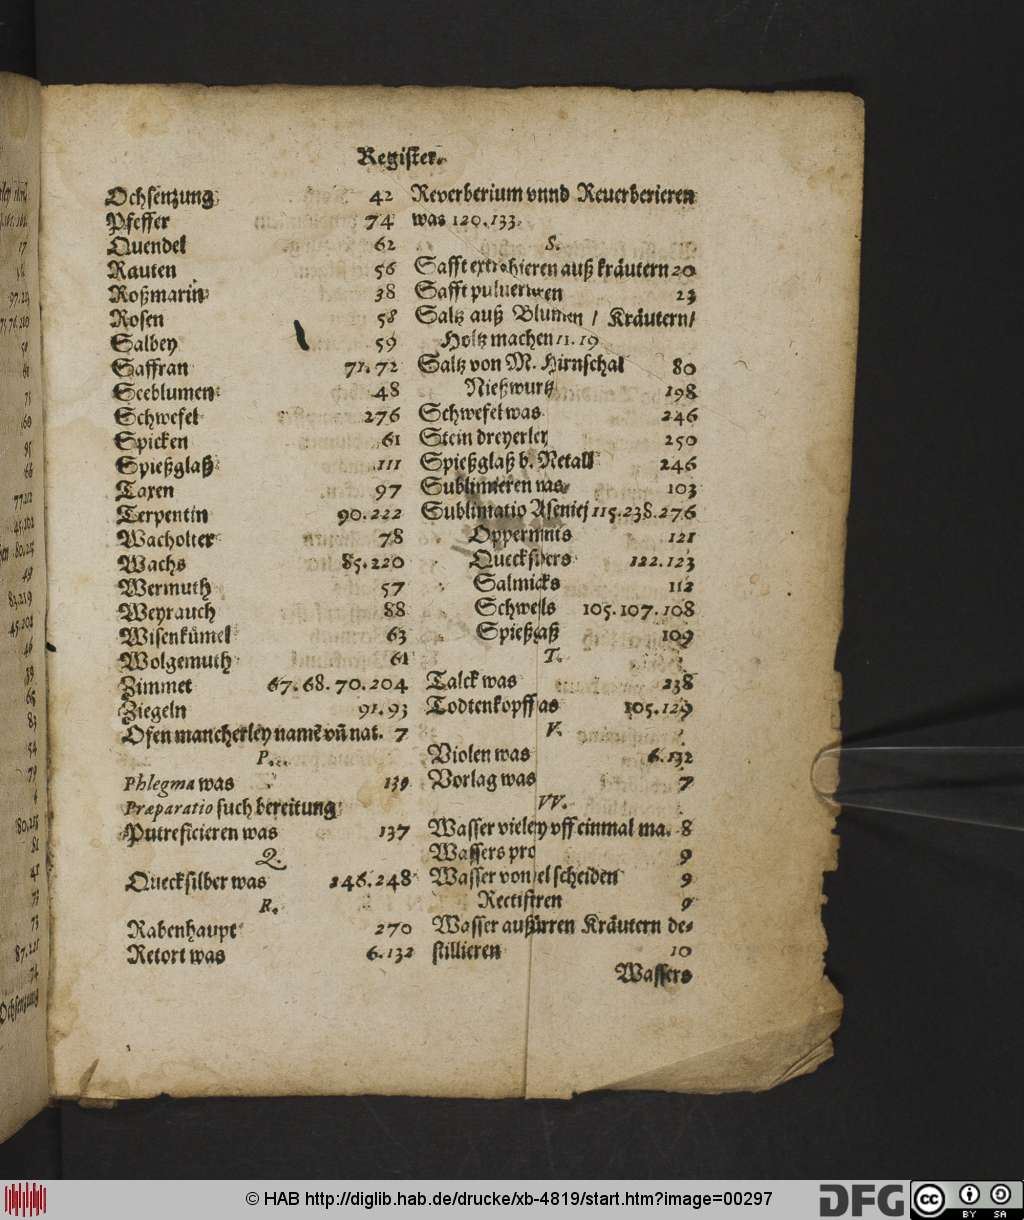 Register.
Ochsenzung 42
Pfeffer 74
Quendel 62
Rauten 56
Roßmarin 38
Rosen 58
Salbey 59
Saffran 71.72
Seeblumen 48
Schwefel 276
Spicken 61
Spießglaß 111
Taxen 97
Terpentin 90.222
Wacholter 78
Wachs 85.220
Wermuth 57
Weyrauch 88
Wisenkümel 63
Wolgemuth 61
Zimmet 67.68.70.204
Ziegeln 91.93
Ofen mancherley namẽ vñ nat. 7
P.
Phlegma was 139
Præparatio such bereitung
Putreficieren was 137
Q.
Quecksilber was 246.248
R.
Rabenhaupt 270
Retort was 6.132
Reverberium vnnd Reuerberieren
was 120.133.
S.
Safft extrahieren auß kräutern 20
Safft 23
Saltz auß Blumen / Kräutern/
Holtz machen 11.19
Saltz von M. Hirnschal 80
Nießwurtz 198
Schwefel was 246
Stein dreyerley 250
Spießglaß b. Metall 246
Sublimieren was 103
Sublimatio 115.238.276
121
122.123
Salmicks 112
105.107.108
109
T.
Talck was 238
Todtenkopff 105.129
V.
Violen was 6.132
Vorlag was 7
VV.
Wasser vff einmal ma. 8
Wassers 9
Wasser von scheiden 9
9
Wasser Kräutern de-
stillieren 10
Wassers
17
97.
160
95
66
97
49
46
65
83
54
Ochsenzung
© HAB http://diglib.hab.de/drucke/xb-4819/start.htm?image=00297
DFG
cc
BY SA